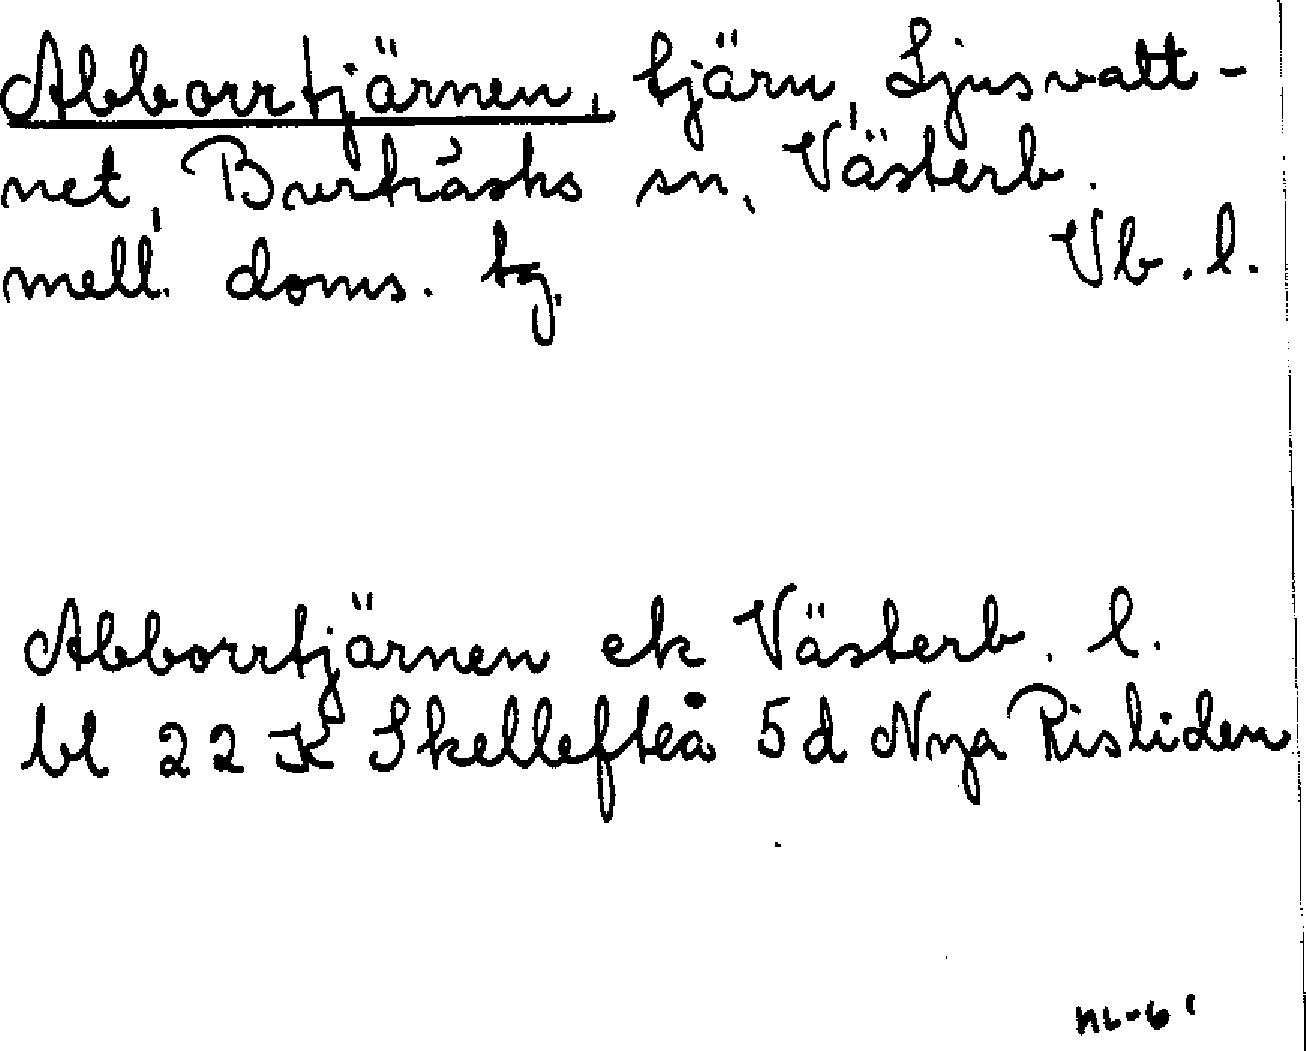 Abborrtjärnen, tjärn, Ljusvatt-
net, Burträsks sn, Västerb.
mell. doms. tg. Vb. l.
Abborrtjärnen ek Västerb. l.
bl 22 K Skellefteå 5d Nya Risliden